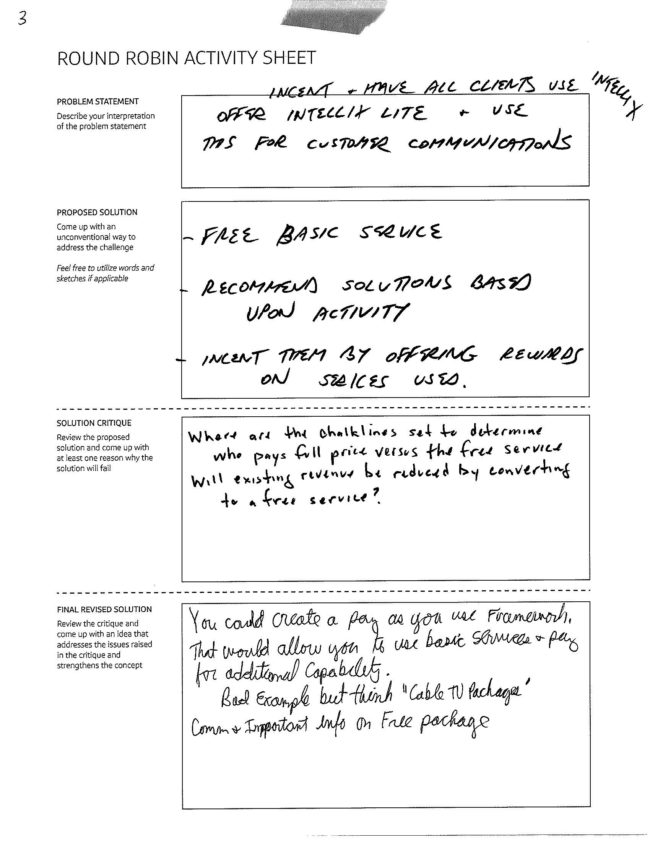 3
ROUND ROBIN ACTIVITY SHEET
PROBLEM STATEMENT
Describe your interpretation
of the problem statement
INCENT + HAVE ALL CLIENTS USE INTELLIX
OFFER INTELLIX LITE + USE
TMS FOR CUSTOMER COMMUNICATIONS
PROPOSED SOLUTION
Come up with an
unconventional way to
address the challenge
Feel free to utilize words and
sketches if applicable
- FREE BASIC SERVICE
- RECOMMEND SOLUTIONS BASED
UPON ACTIVITY
- INCENT THEM BY OFFERING REWARDS
ON SERICES USED.
SOLUTION CRITIQUE
Review the proposed
solution and come up with
at least one reason why the
solution will fail
Where are the chalklines set to determine
who pays full price versus the free service
Will existing revenue be reduced by converting
to a free service?
FINAL REVISED SOLUTION
Review the critique and
come up with an idea that
addresses the issues raised
in the critique and
strengthens the concept
You could create a pay as you use Framework.
That would allow you to use basic Services + pay
for additional Capability.
Bad Example but think "Cable TV Packages"
Comm + Important info on Free package